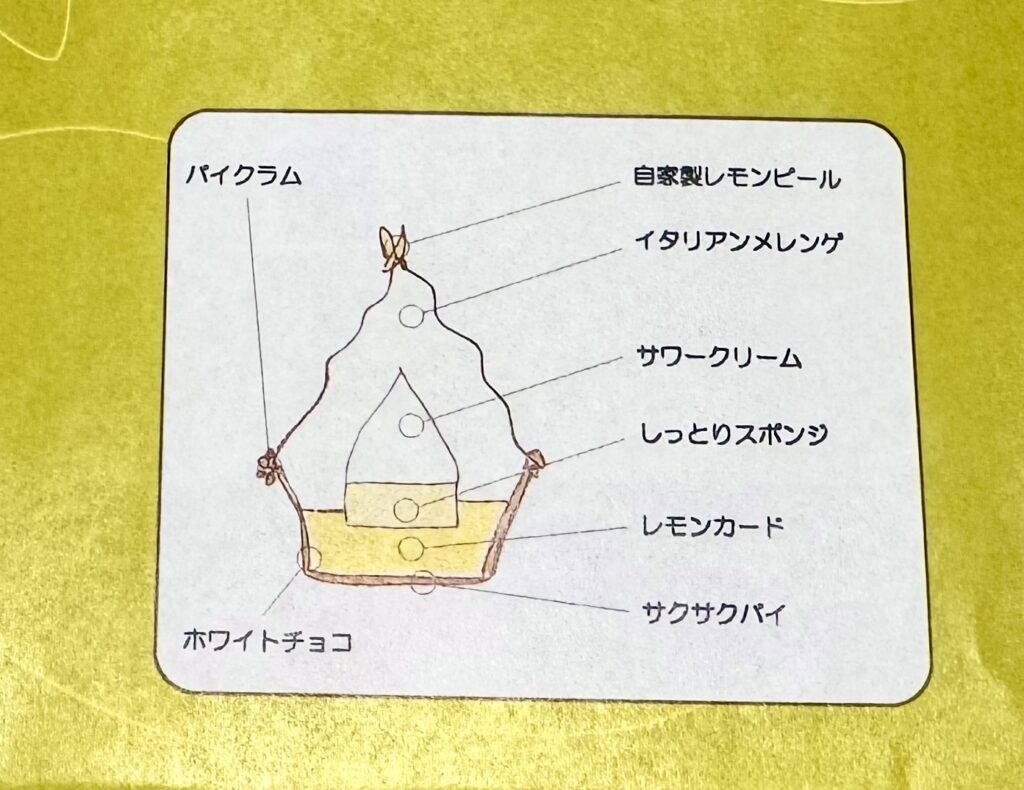 パイクラム
自家製レモンピール
イタリアンメレンゲ
サワークリーム
しっとりスポンジ
レモンカード
サクサクパイ
ホワイトチョコ